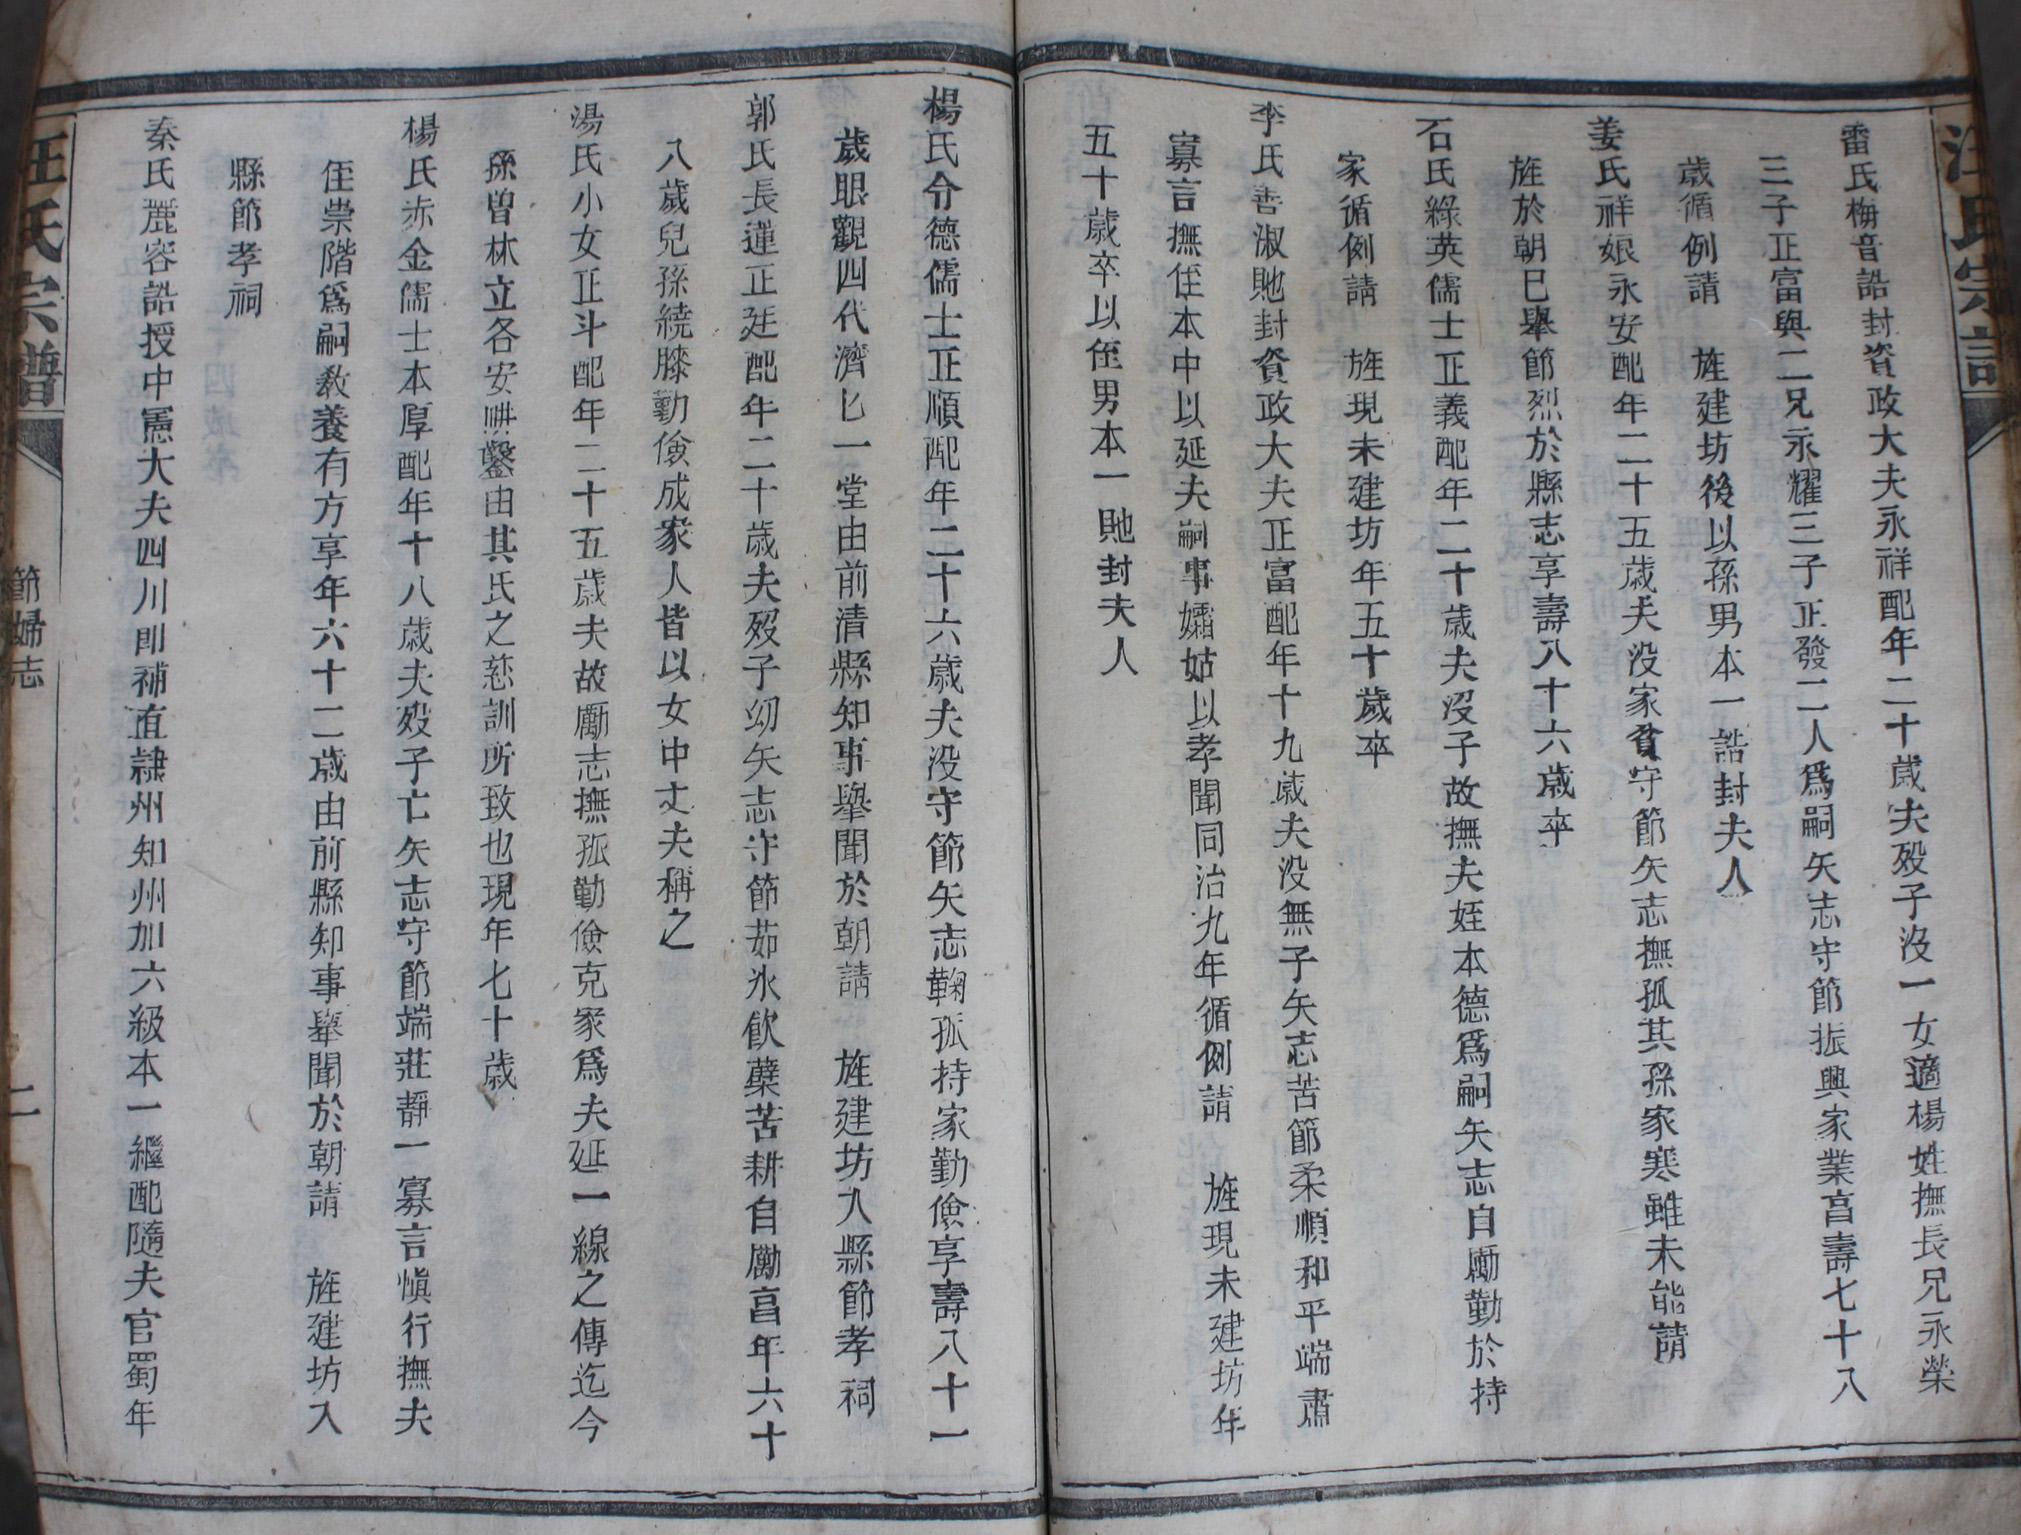 汪氏宗譜
雷氏梅音誥封資政大夫永祥配年二十歲夫歿子沒一女適楊姓撫長兄永榮
三子正富與二兄永耀三子正發二人爲嗣矢志守節振興家業亯壽七十八
歲循例請 旌建坊後以孫男本一誥封夫人
姜氏祥娘永安配年二十五歲夫没家貧守節矢志撫孤其孫家寒雖未能請
旌於朝巳舉節烈於縣志享壽八十六歲卒
石氏綠英儒士正義配年二十歲夫沒子故撫夫姪本德爲嗣矢志自勵勤於持
家循例請 旌現未建坊年五十歲卒
李氏善淑貤封資政大夫正富配年十九歲夫没無子矢志苦節柔順和平端肅
寡言撫侄本中以延夫嗣事孀姑以孝聞同治九年循例請 旌現未建坊年
五十歲卒以侄男本一貤封夫人
楊氏令德儒士正順配年二十六歲夫没守節矢志鞠孤持家勤儉享壽八十一
歲眼觀四代濟匕一堂由前清縣知事舉聞於朝請 旌建坊入縣節孝祠
郭氏長蓮正廷配年二十歲夫歿子幼矢志守節茹氷飲蘗苦耕自勵亯年六十
八歲兒孫繞膝勤儉成家人皆以女中丈夫稱之
湯氏小女正斗配年二十五歲夫故勵志撫孤勤儉克家爲夫延一線之傳迄今
孫曾林立各安畊鑿由其氏之慈訓所致也現年七十歲
楊氏赤金儒士本厚配年十八歲夫歿子亡矢志守節端莊靜一寡言愼行撫夫
侄崇階爲嗣教養有方享年六十二歲由前縣知事舉聞於朝請 旌建坊入
縣節孝祠
秦氏麗容誥授中憲大夫四川即補直隷州知州加六級本一繼配隨夫官蜀年
汪氏宗譜
節婦志
二